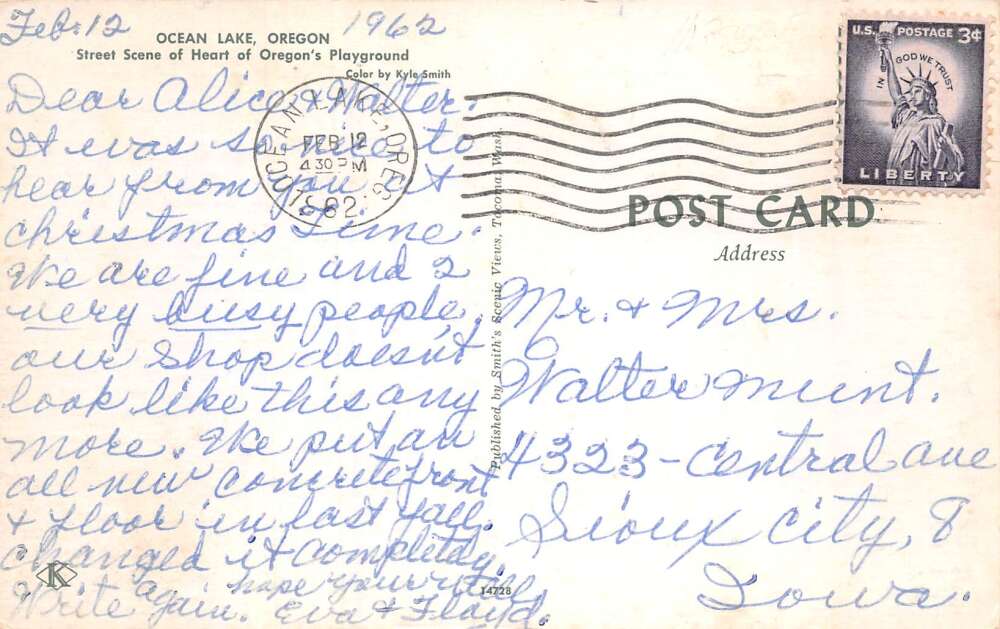 Feb. 12 1962
OCEAN LAKE, OREGON
Street Scene of Heart of Oregon's Playground
Color by Kyle Smith
Dear Alice & Walter.
It was so nice to
hear from you at
christmas time.
We are fine and 2
very busy people.
our shop doesn't
look like this any
more. We put an
all new concrete front
& floor in last fall.
changed it completely.
hope your well.
Write again. Eva & Floyd.
K
14728
OCEANLAKE, OREG.
FEB 12
4 30 PM
1962
Published by Smith's Scenic Views, Tacoma, Wash.
U.S. POSTAGE 3¢
IN GOD WE TRUST
LIBERTY
POST CARD
Address
Mr. & Mrs.
Walter Munt.
4323 - Central ave
Sioux City, 8
Iowa.